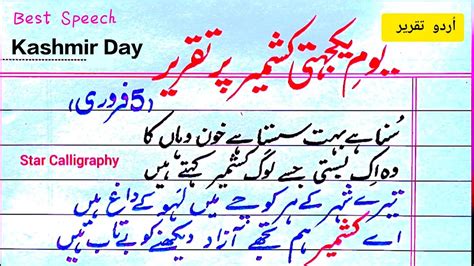 Best Speech
اُردو تقریر
Kashmir Day
یومِ یکجہتی کشمیر پر تقریر
(5 فروری)
سُنا ہے بہت سستا ہے خون وہاں کا
Star Calligraphy
وہ اِک بستی جسے لوگ کشمیر کہتے ہیں
تیرے شہر کے ہر کوچے میں لہو کے داغ ہیں
اے کشمیر ہم تجھے آزاد دیکھنے کو بے تاب ہیں